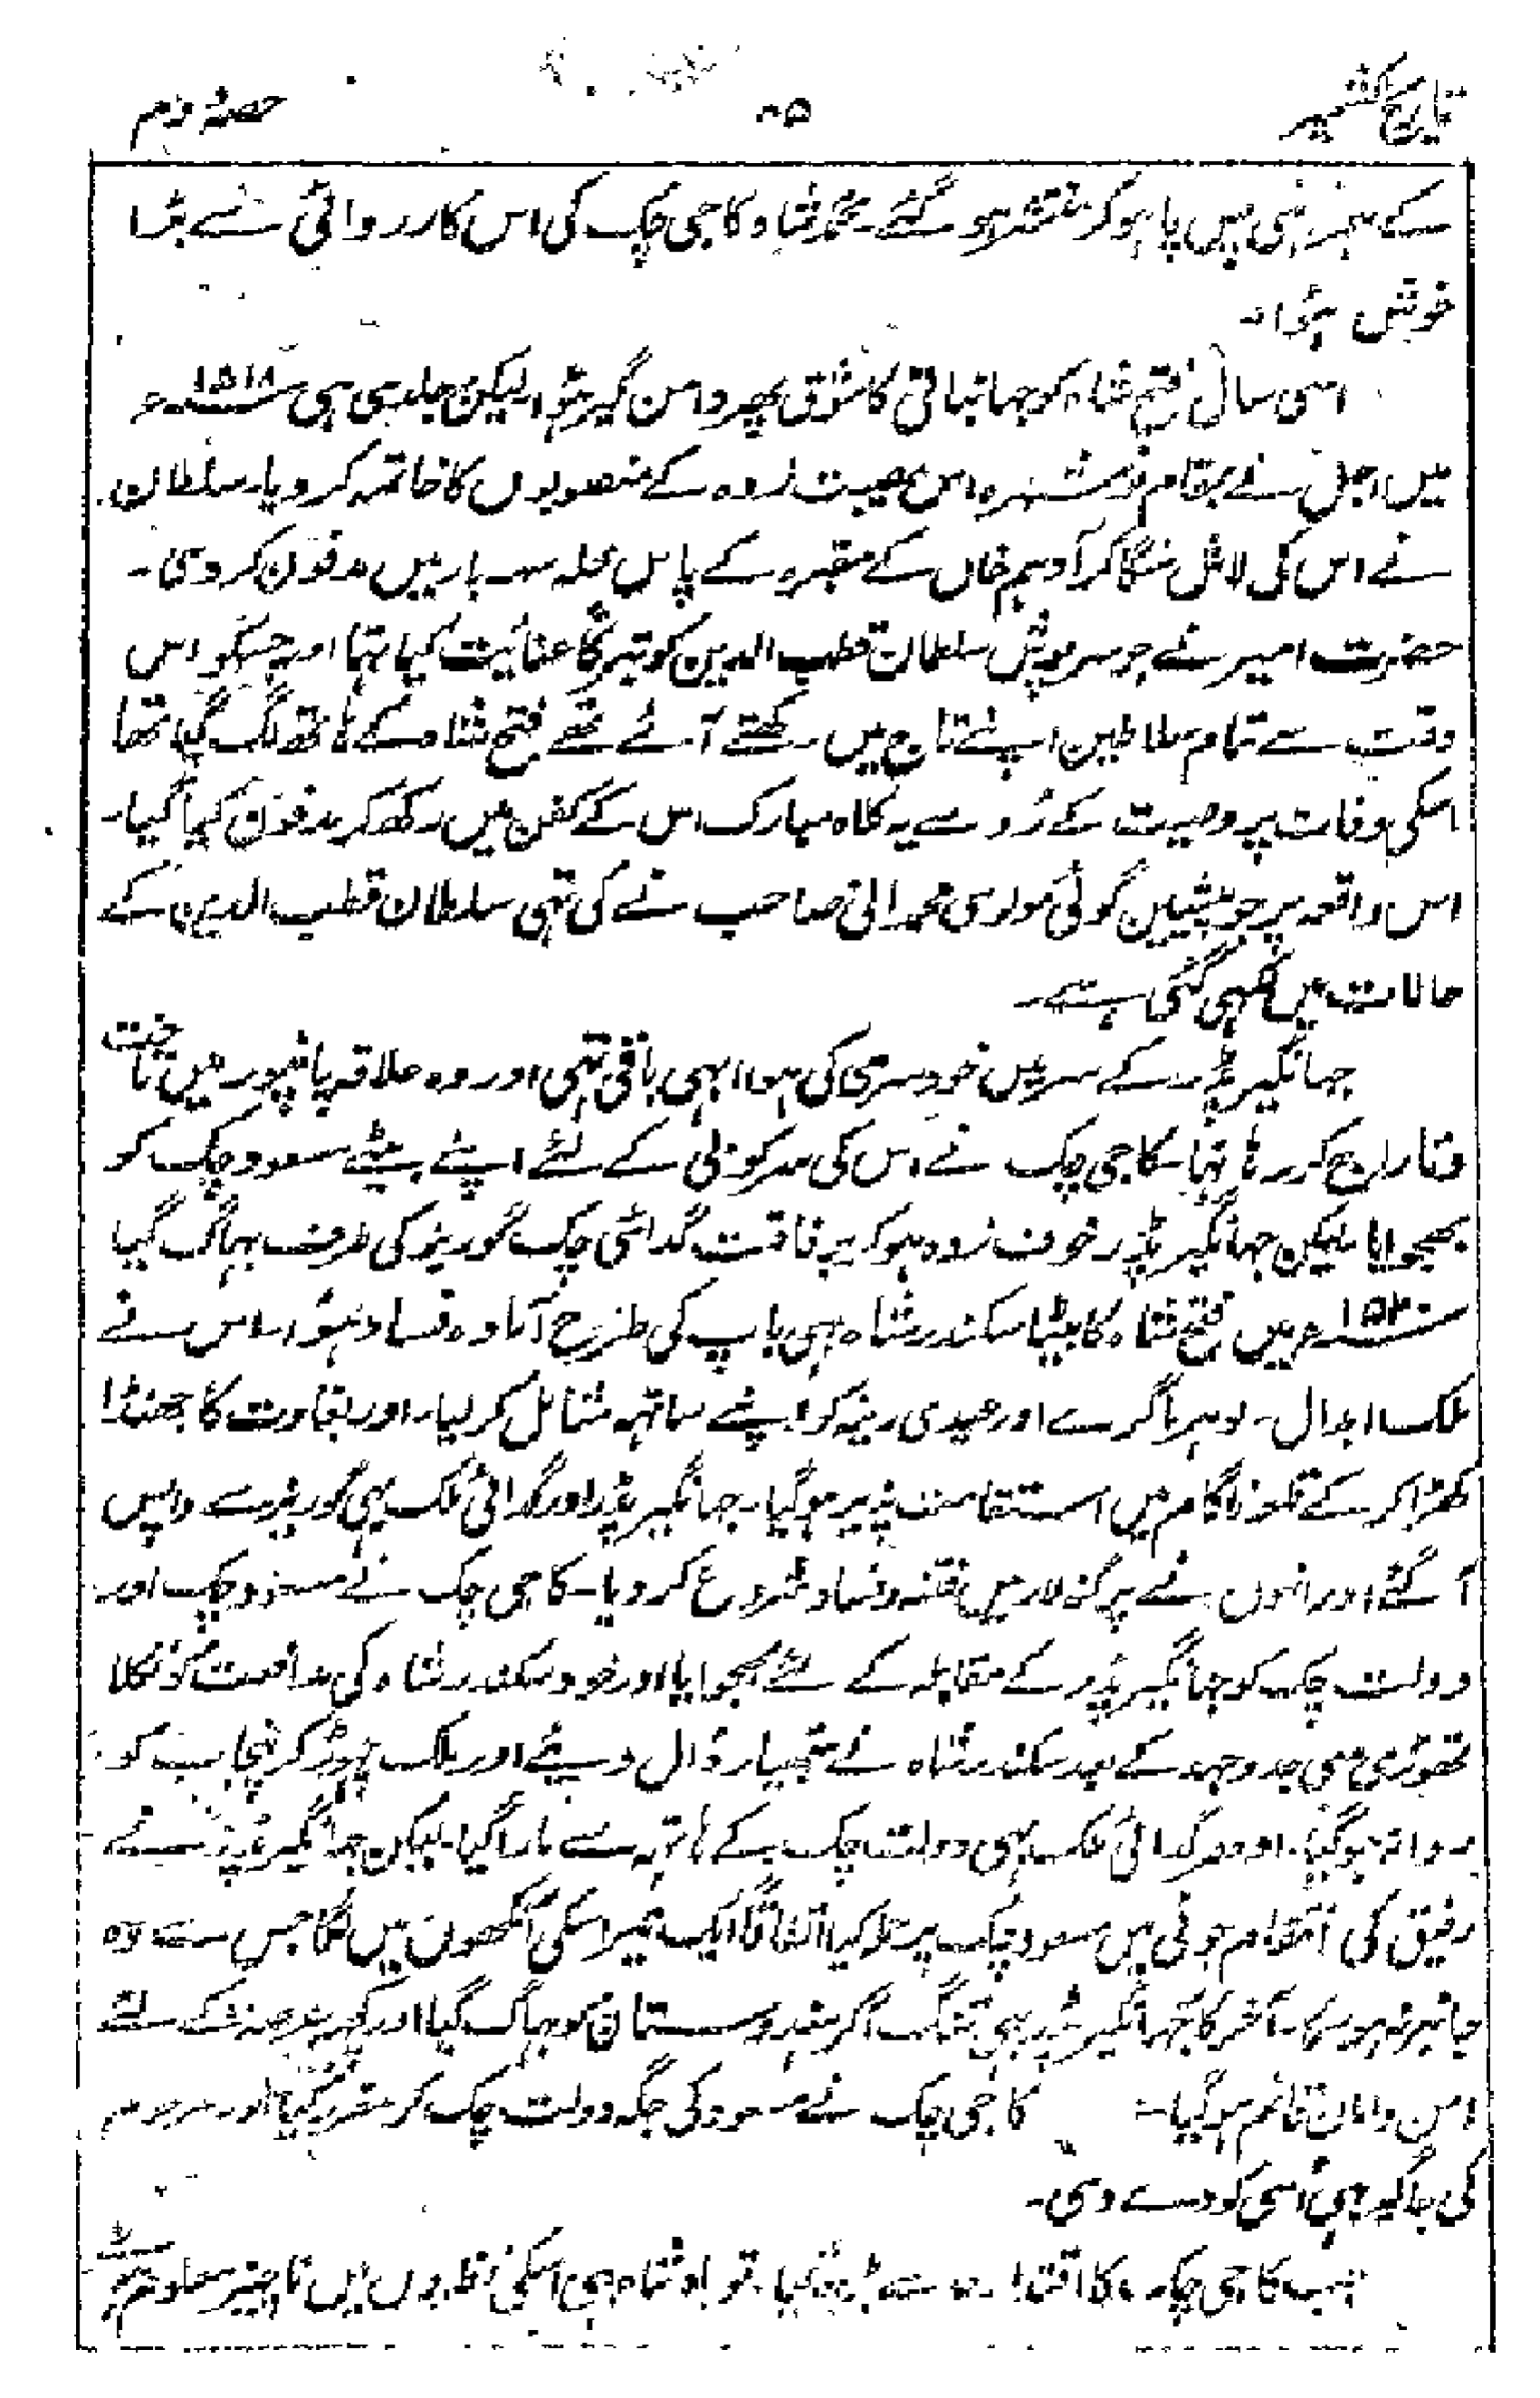 تاریخ کشمیر
حصہ دوم
کے ہیرہ پور میں پا ہو کر منتشر ہو گئے۔ محمد شاہ کاجی چک کی اس کارروائی سے بڑا
خوش ہؤا۔
اسی سال فتح شاہ کو جہانبانی کا شوق پھر دامن گیر ہؤا۔ لیکن جلدی ہی ۱۵۱۸ء
میں اجل نے بمقام نوشہرہ اس مصیبت زدہ کے منصوبوں کا خاتمہ کر دیا۔ سلطان
نے اس کی لاش منگا کر آدہم خاں کے مقبرہ کے پاس محلہ سہ یار میں مدفون کر دی۔
حضرت امیر نے جو سرپوش سلطان قطب الدین کو تبرکاً عنائیت کیا تہا اور جسکو اس
وقت سے تمام سلاطین اپنے تاج میں رکھتے آئے تھے فتح شاہ کے ہاتھ لگ گیا تھا
اسکی وفات پر وصیت کے رُو سے یہ کلاہ مبارک اس کے کفن میں رکھ کر مدفون کیا گیا۔
اس واقعہ پر جو پیشین گوئی مولوی محمد آنی صاحب نے کی تہی سلطان قطب الدین کے
حالات میں لکہی گئی ہے۔
جہانگیر پڈر کے سر میں خود سری کی ہوا ابہی باقی تہی اور وہ علاقہ پانپور میں تاخت
و تاراج کر رہا تہا۔ کاجی چک نے اس کی سرکوبی کے لئے اپنے بیٹے مسعود چک کو
بھجوایا لیکن جہانگیر پڈر خوف زدہ ہو کر بہ رفاقت گدائی چک گوریز کی طرف بہاگ گیا
۱۵۲۰ء میں فتح شاہ کا بیٹا سکندر شاہ بہی باپ کی طرح آمادہ فساد ہؤا۔ اس نے
ملک ابدال۔ لوہر ماگرے اور عیدی رینہ کو اپنے ساتہہ شامل کر لیا۔ اور بغاوت کا جھنڈا
کھڑا کر کے قلعہ ناگام میں استقامت پذیر ہو گیا۔ جہانگیر پڈر اور گدائی ملک بہی گوریز سے واپس
آ گئے اور انہوں نے پرگنہ لار میں فتنہ و فساد شروع کر دیا۔ کاجی چک نے مسعود چک اور
دولت چک کو جہانگیر پڈر کے مقابلہ کے لئے بھجوایا اور خود سکندر شاہ کی مدافعت کو نکلا
تھوڑی سی جد و جہد کے بعد سکندر شاہ نے ہتھیار ڈال دیئے اور ملک چہوڑ کر پنجاب کو
روانہ ہو گیا۔ اودہر گدائی ملک بہی دولت چک کے ہاتہہ سے مارا گیا۔ لیکن جہانگیر پڈر نے
رفیق کی انتقام جوئی میں مسعود چک پر حملہ کیا اتفاقاً ایک تیر اسکی آنکھوں میں لگا جس سے وہ
جانبر نہ ہو سکا۔ آخر کار جہانگیر پڈر بھی تنگ آ کر ہندوستان کو بہاگ گیا اور کچہہ عرصہ کے لئے
امن و امان قائم ہو گیا۔ کاجی چک نے مسعود کی جگہ دولت چک کو مقرر کیا اور مرحوم
کی جاگیر بہی اُسی کو دے دی۔
جب کاجی چک کا اقتدار حد سے بڑھ گیا۔ تو بادشاہ بہی اسکی نظروں میں ناچیز معلوم